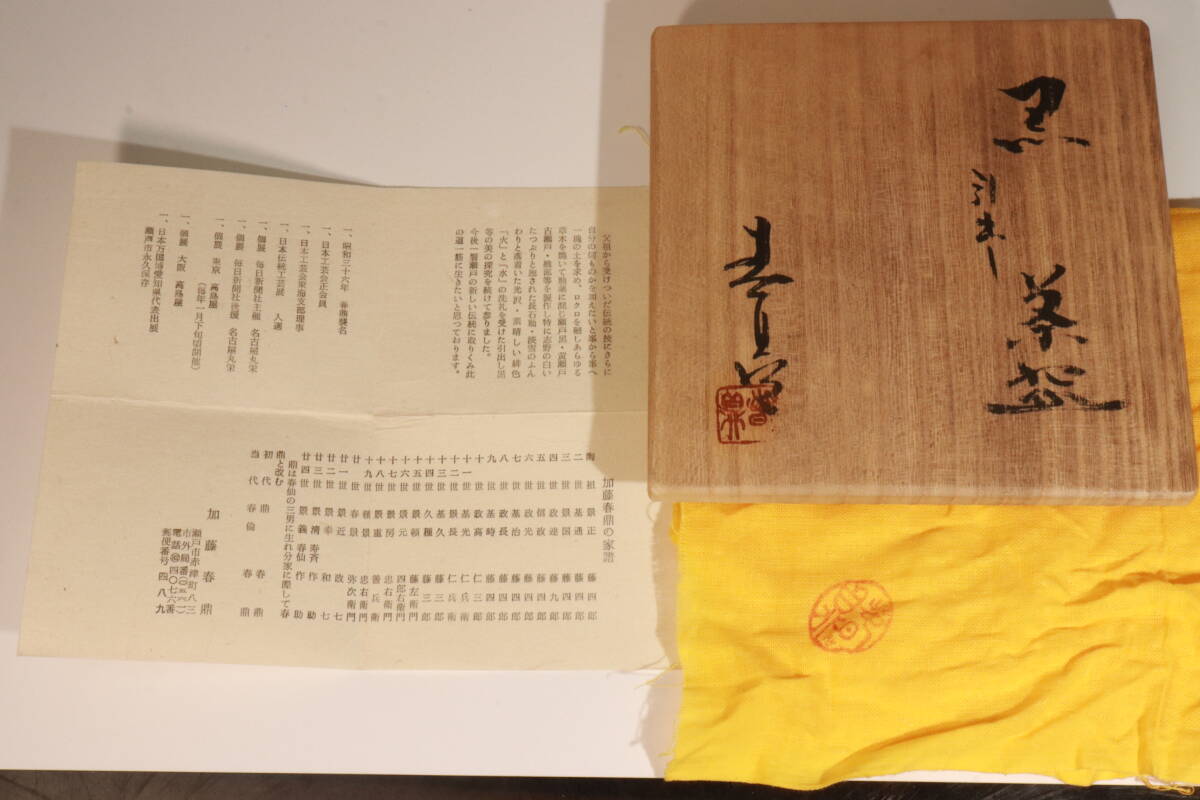 黒
引出
茶盌
春鼎
父祖から受けついだ伝統の技にさらに
自分の何ものかを加えたいと事から事へ
一塊の土を求め、ロクロを廻しあらゆる
草木を焼いて釉薬に混じ瀬戸黒・黄瀬戸
古瀬戸・織部等を製作し特に志野の白い
たっぷりと施された長石釉・淡雪のふん
わりと落着いた光沢・素晴しい緋色
「火」と「水」の洗礼を受けた引出し黒
等の美の探究を続けて参りました。
今後一層瀬戸の新しい伝統に取りくみ此
の道一筋に生きたいと思っております。
一、昭和三十六年 春鼎襲名
一、日本工芸会正会員
一、日本工芸会東海支部理事
一、日本伝統工芸展 入選
一、個展 毎日新聞社主催 名古屋丸栄
一、個展 毎日新聞社後援 名古屋丸栄
一、個展 東京 高島屋
(毎年一月下旬頃開催)
一、個展 大阪 高島屋
一、日本万国博愛知県代表出展
瀬戸市永久保存
加藤春鼎の家譜
陶祖 景正 藤四郎
二世 基通 藤四郎
三世 景国 藤四郎
四世 政連 藤九郎
五世 信政 藤四郎
六世 政光 藤四郎
七世 基治 藤四郎
八世 政長 藤四郎
九世 基時 藤四郎
十世 政高 仁三郎
十一世 基光 仁兵衛
十二世 景長 仁兵衛
十三世 基久 藤三郎
十四世 久種 藤三郎
十五世 景頼 藤左衛門
十六世 景元 四郎右衛門
十七世 景房 忠右衛門
十八世 景重 善兵衛
十九世 種景 忠右衛門
廿世 春景 弥次衛門
廿一世 景近 政七
廿二世 景幸 和七
廿三世 景清 寿斉 作助
廿四世 景義 春仙 作助
鼎は春仙の三男に生れ分家に際して春
鼎と改む
初代 鼎 春鼎
当代 春倫 春鼎
加藤春鼎
瀬戸市赤津町八三
市外局番(〇五六一)
電話 四〇七六番
郵便番号 四八九